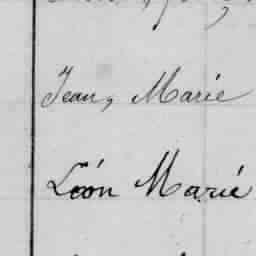 Jean, Marie
Léon Marié